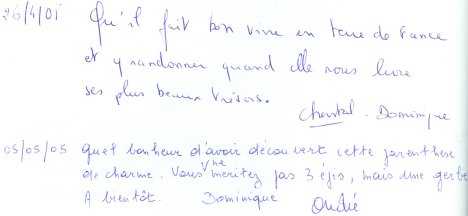 26/4/01 Qu'il fait bon vivre en terre de France
et y randonner quand elle nous livre
ses plus beaux trésors.
Chantal . Dominique
05/05/05 Quel bonheur d'avoir découvert cette parenthèse
de charme. Vous n'méritez pas 3 épis, mais une gerbe
A bientôt. Dominique